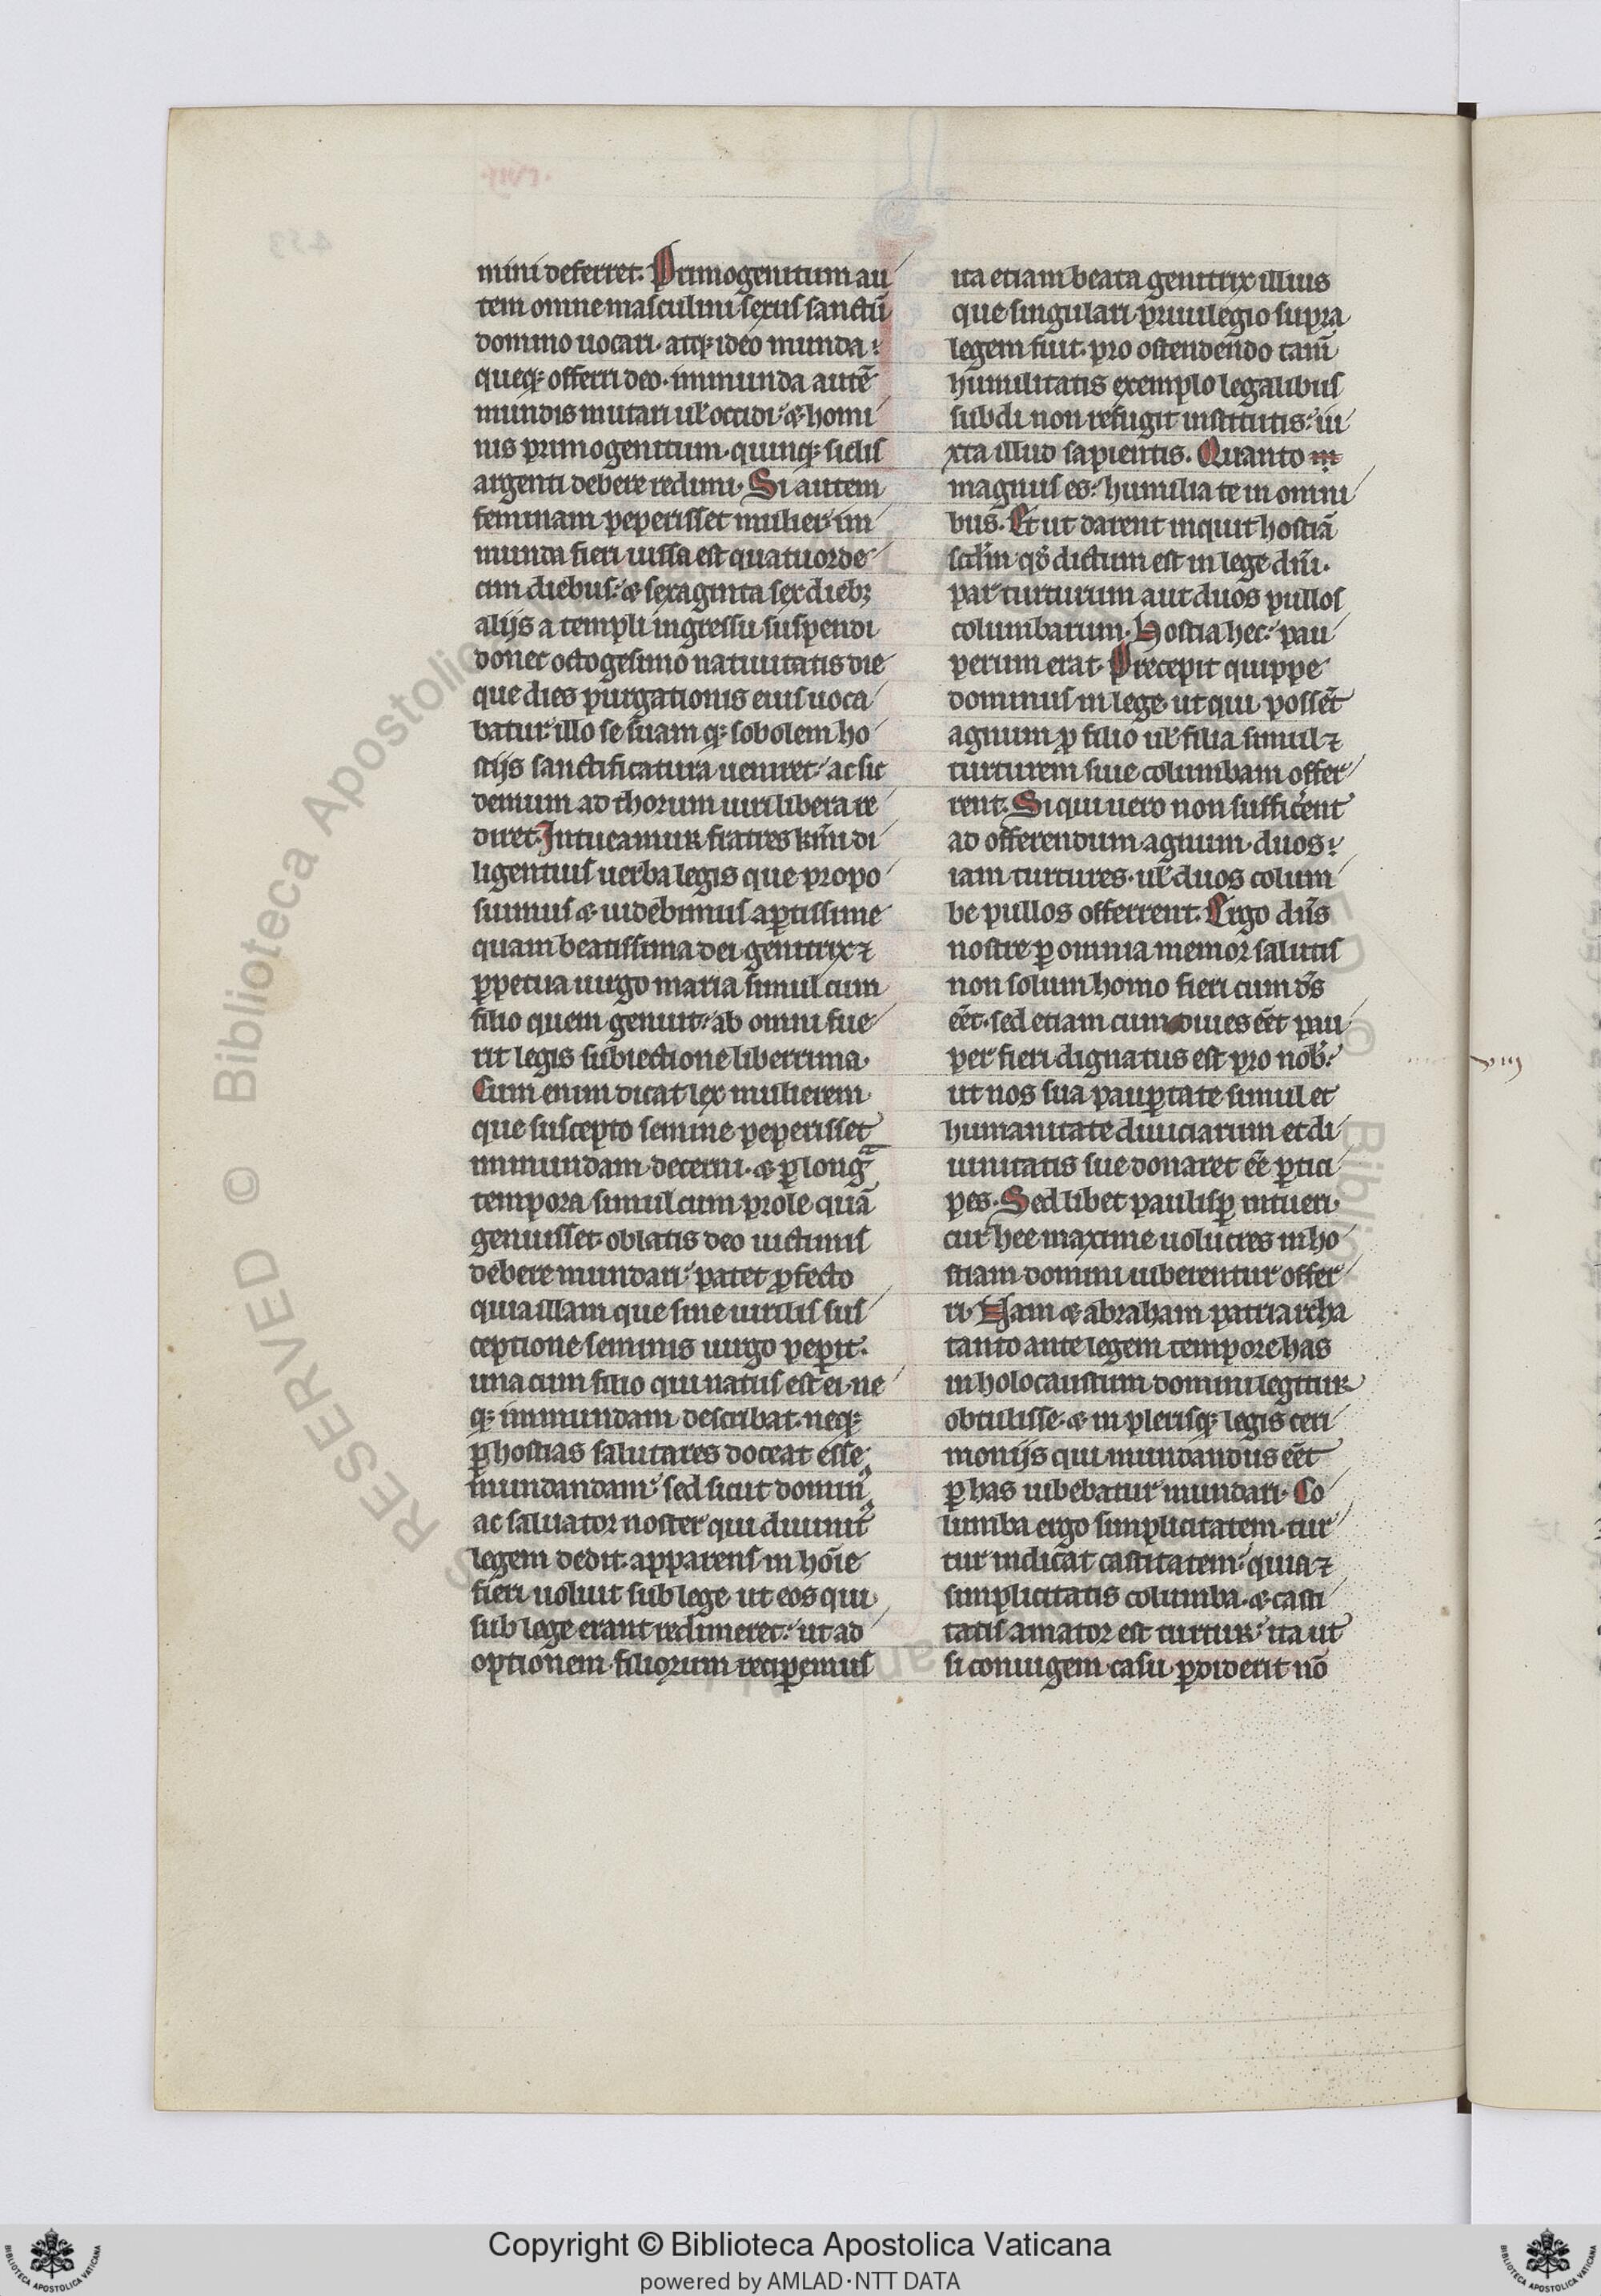 mini deferret. Primogenitum au
tem omne masculini sexus sanctū
domino uocari. atq; ideo munda
queq; offerri deo. inmunda autē
mundis mutari ul̓ occidi. & homi
nis primogenitum quinq; siclis
argenti debere redimi. Si autem
feminam peperisset mulier im
munda fieri iussa est quatuorde
cim diebus. & sexaginta sex dieb;
alijs a templi ingressu suspendi
donec octogesimo natiuitatis die
que dies purgationis eius uoca
batur. illo se suam q; sobolem ho
stijs sanctificatura ueniret. ac sic
demum ad thorum uiri libera re
diret. Intueamur fratres kr̄mi di
ligentius uerba legis que propo
suimus & uidebimus ap̱tissime
quam beatissima dei genitrix ⁊
p̱petua uirgo maria simul cum
filio quem genuit. ab omni fue
rit legis subiectione liberrima.
Cum enim dicat lex mulierem
que suscepto semine peperisset
inmundam decerni. & p̱ longa
tempora simul cum prole quā
genuisset oblatis deo uictimis
debere mundari. patet ꝓfecto
quia illam que sine uirilis sus
ceptione seminis uirgo pep̱it.
una cum filio qui natus est ei. ne
q; inmundam describat. neq;
p̱ hostias salutares doceat esse
mundandam. sed sicut domin⁹
ac saluator noster qui diuinit⁹
legem dedit. apparens in hoīe
fieri uoluit sub lege ut eos qui
sub lege erant redimeret. ut ad
optionem filiorum recip̱emus
ita etiam beata genitrix illius
que singulari priuilegio supra
legem fuit. pro ostendendo tam̄
humilitatis exemplo legalibus
subdi non refugit institutis. iu
xta illud sapientis. Quanto m
magnus es. humilia te in omni
bus. Et ut darent inquit hostiā
scdm̄ qd̓ dictum est in lege dn̄i.
par turturum aut duos pullos
columbarum. Hostia hec. pau
perum erat. Precepit quippe
dominus in lege. ut qui possēt
agnum ꝓ filio ul̓ filia simul ⁊
turturem siue columbam offer
rent. Si qui uero non sufficent
ad offerendum agnum. duos
iam turtures. ul̓ duos colum
be pullos offerrent. Ergo dn̄s
nostre p̱ omnia memor salutis
non solum homo fieri cum ds̄
eēt. sed etiam cum diues eēt pau
per fieri dignatus est pro nob̓.
ut nos sua paup̱tate simul et
humanitate diuiciarum et di
uinitatis sue donaret eē p̱tici
pes. Sed libet paulisp̱ intueri
cur hee maxime uolucres in ho
stiam domini iuberentur offer
ri. Nam & abraham patriarcha
tanto ante legem tempore has
in holocaustum domini legitur
obtulisse. & in plerisq; legis ceri
monijs qui mundandus eēt
p̱ has iubebatur mundari. Co
lumba ergo simplicitatem. tur
tur indicat castitatem. quia ⁊
simplicitatis columba. & casti
tatis amator est turtur. ita ut
si coniugem casu p̱diderit nō
Copyright © Biblioteca Apostolica Vaticana
powered by AMLAD·NTT DATA